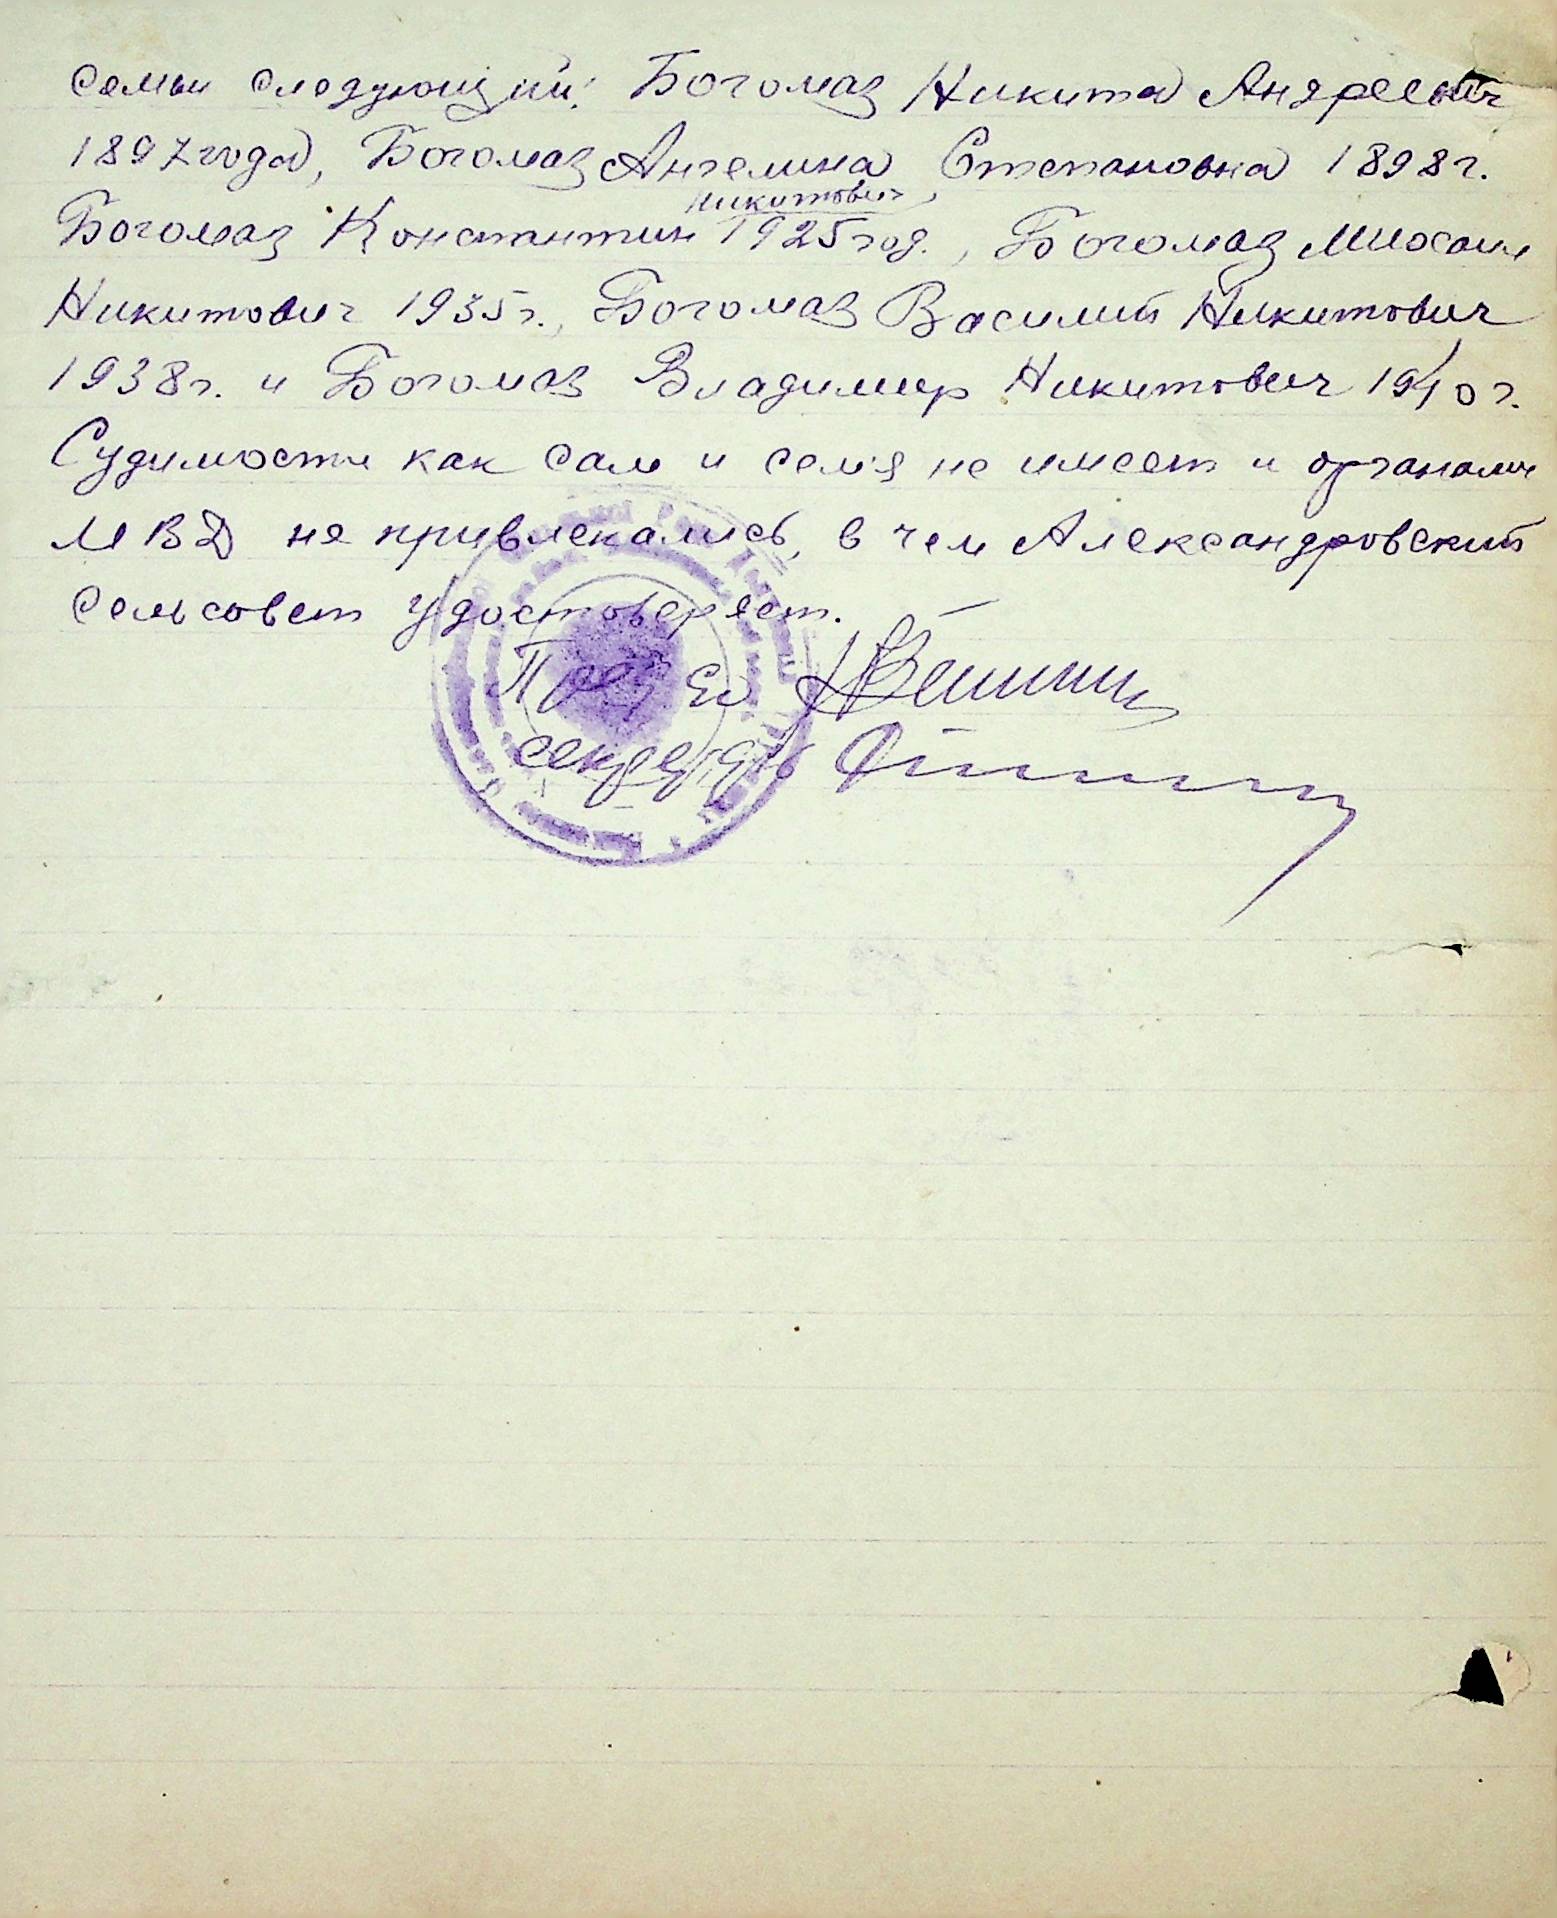 семьи следующий: Богомаз Никита Андреевич
1897 года, Богомаз Ангелина Степановна 1898 г.
Никитович,
Богомаз Константин 1925 год., Богомаз Михаил
Никитович 1935 г., Богомаз Василий Никитович
1938 г. и Богомаз Владимир Никитович 1940 г.
Судимости как сам и сем'я не имеет и органами
МВД не привлекались, в чем Александровский
сельсовет удостоверяет.
Пред с/с
секретарь